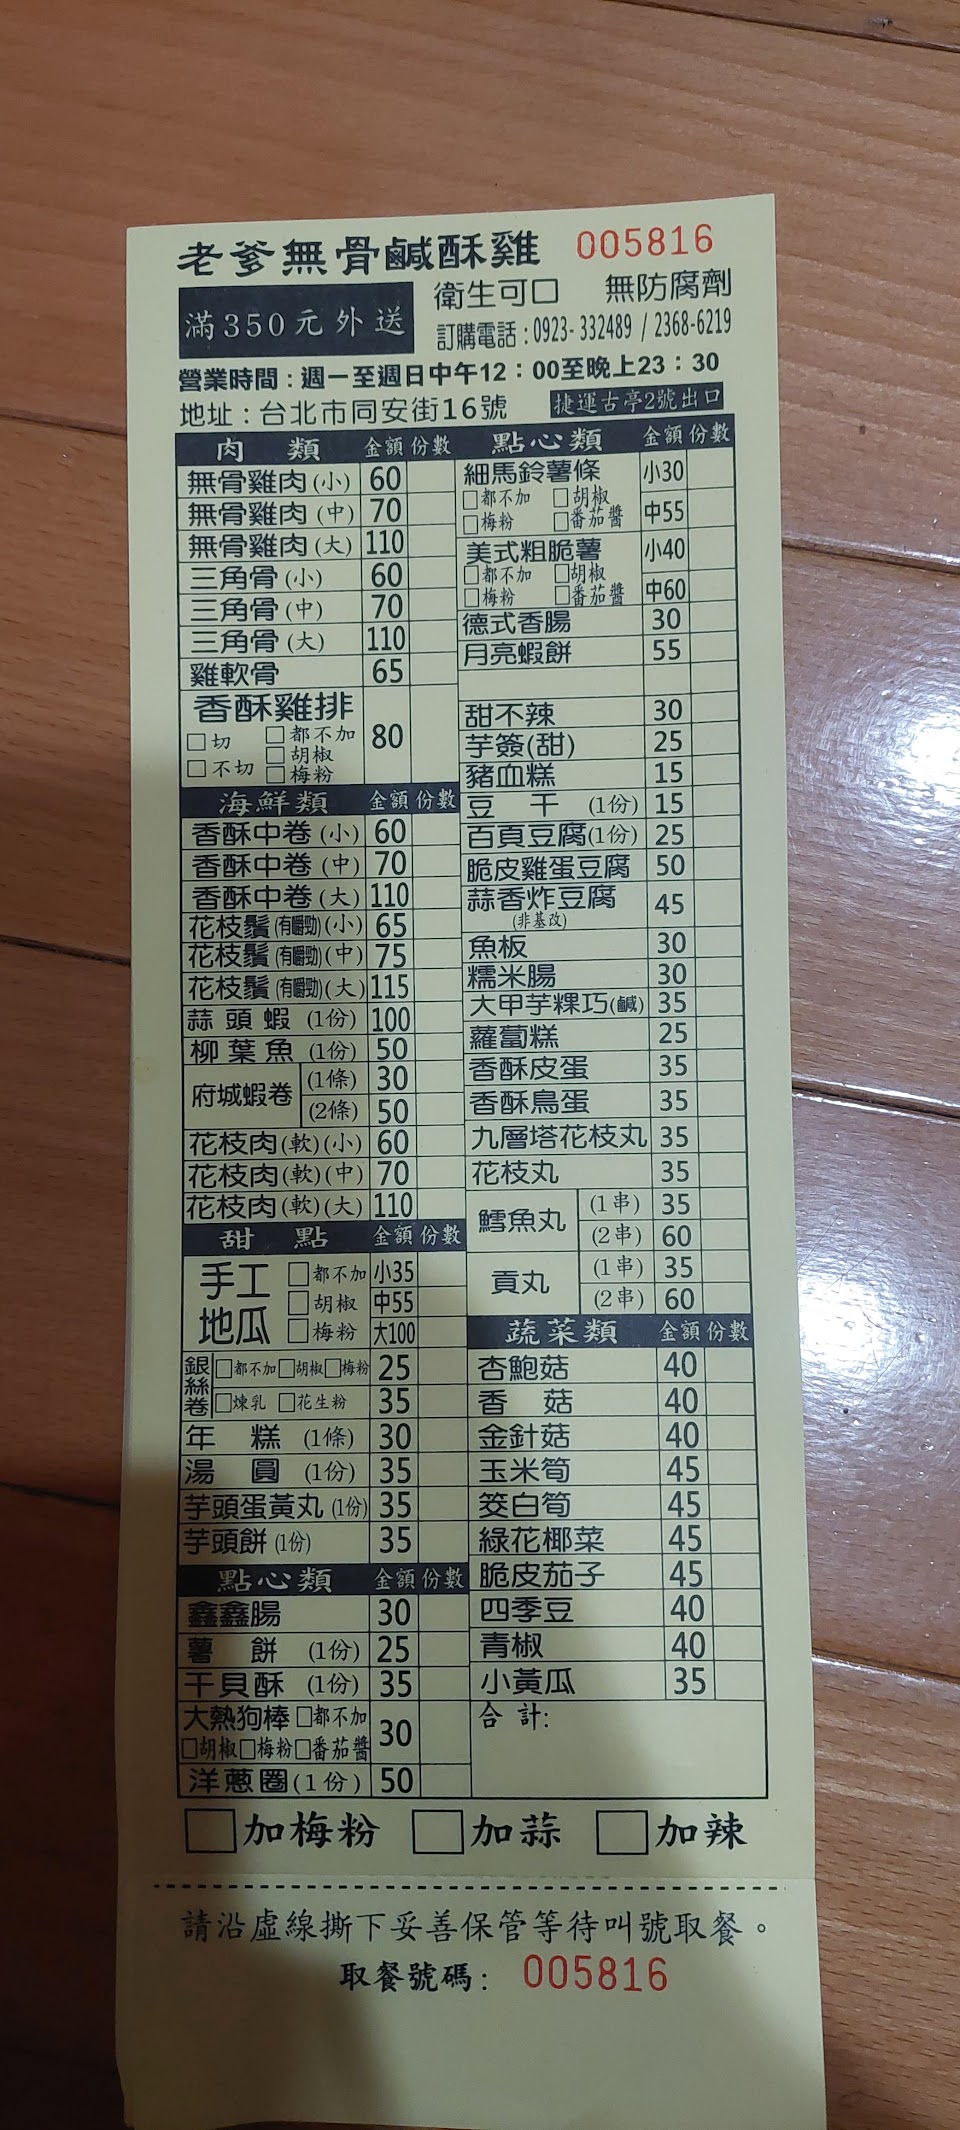 老爹無骨鹹酥雞 005816
滿350元外送
衛生可口 無防腐劑
訂購電話：0923-332489 / 2368-6219
營業時間：週一至週日中午12：00至晚上23：30
地址：台北市同安街16號 捷運古亭2號出口
肉 類 金額 份數
無骨雞肉(小) 60
無骨雞肉(中) 70
無骨雞肉(大) 110
三角骨(小) 60
三角骨(中) 70
三角骨(大) 110
雞軟骨 65
香酥雞排 80
□切 □都不加
□胡椒
□不切 □梅粉
海鮮類 金額 份數
香酥中卷(小) 60
香酥中卷(中) 70
香酥中卷(大) 110
花枝鬚(有嚼勁)(小) 65
花枝鬚(有嚼勁)(中) 75
花枝鬚(有嚼勁)(大) 115
蒜頭蝦(1份) 100
柳葉魚(1份) 50
府城蝦卷 (1條) 30
(2條) 50
花枝肉(軟)(小) 60
花枝肉(軟)(中) 70
花枝肉(軟)(大) 110
甜 點 金額 份數
手工地瓜 □都不加 小35
□胡椒 中55
□梅粉 大100
銀絲卷 □都不加□胡椒□梅粉 25
□煉乳 □花生粉 35
年 糕 (1條) 30
湯 圓 (1份) 35
芋頭蛋黃丸(1份) 35
芋頭餅(1份) 35
點心類 金額 份數
鑫鑫腸 30
薯 餅 (1份) 25
干貝酥 (1份) 35
大熱狗棒□都不加 30
□胡椒□梅粉□番茄醬
洋蔥圈(1份) 50
點心類 金額 份數
細馬鈴薯條 小30
□都不加 □胡椒
□梅粉 □番茄醬 中55
美式粗脆薯 小40
□都不加 □胡椒
□梅粉 □番茄醬 中60
德式香腸 30
月亮蝦餅 55
甜不辣 30
芋簽(甜) 25
豬血糕 15
豆 干 (1份) 15
百頁豆腐(1份) 25
脆皮雞蛋豆腐 50
蒜香炸豆腐 45
(非基改)
魚板 30
糯米腸 30
大甲芋粿巧(鹹) 35
蘿蔔糕 25
香酥皮蛋 35
香酥鳥蛋 35
九層塔花枝丸 35
花枝丸 35
鱈魚丸 (1串) 35
(2串) 60
貢丸 (1串) 35
(2串) 60
蔬菜類 金額 份數
杏鮑菇 40
香 菇 40
金針菇 40
玉米筍 45
筊白筍 45
綠花椰菜 45
脆皮茄子 45
四季豆 40
青椒 40
小黃瓜 35
合 計:
□加梅粉 □加蒜 □加辣
請沿虛線撕下妥善保管等待叫號取餐。
取餐號碼: 005816